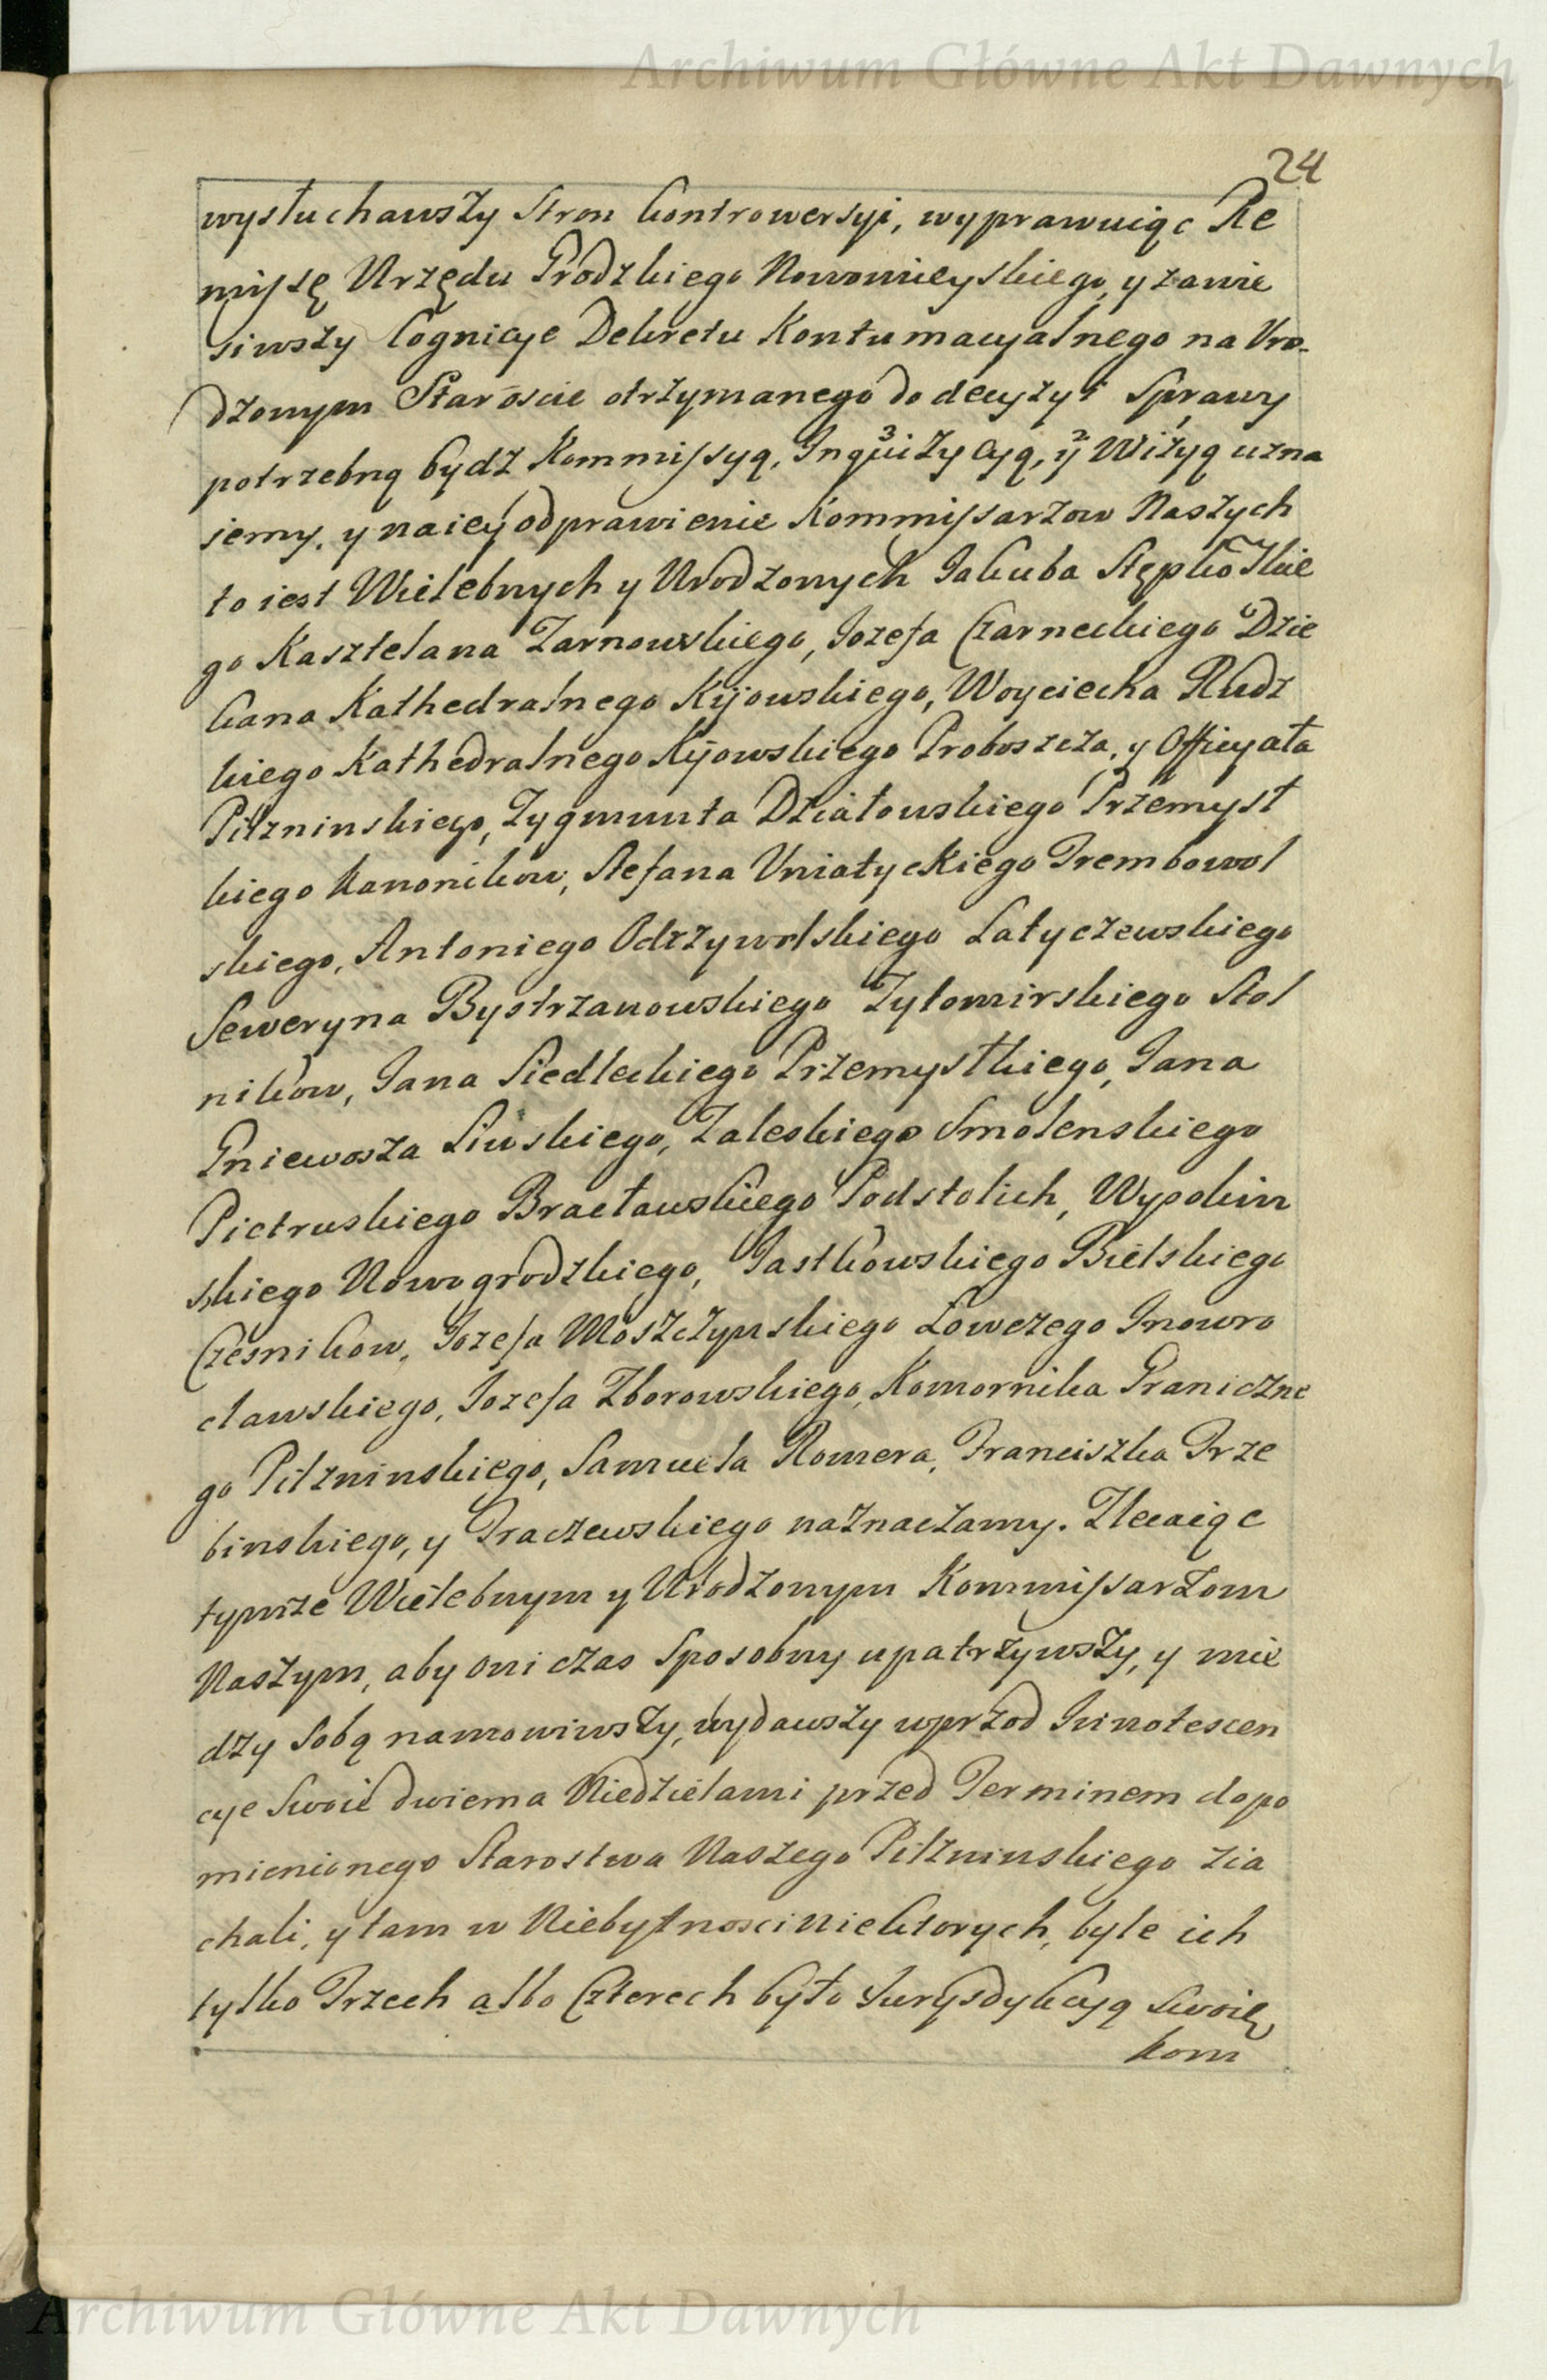 Archiwum Główne Akt Dawnych
24
wysłuchawszy Stron Controwersyi, wyprawuiąc Re
missę Urzędu Grodzkiego Nowomieyskiego, y zawie
siwszy Cognicye Dekretu Kontumacyalnego na Vro-
dzonym Staroście otrzymanego do decyzyi Sprawy
potrzebną bydz Kommissyą, Inqui3zycyą, y2 Wizyą uzna
jemy, y na iey odprawienie Kommissarzow Naszych
to iest Wielebnych y Urodzonych Jakuba Stępkowskie
go Kasztelana Zarnowskiego, Jozefa Czarneckiego Dzie
kana Kathedralnego Kijowskiego, Woyciecha Rudz
kiego Kathedralnego Kijowskiego Proboszcza, y Officyała
Pilzninskiego, Zygmunta Działowskiego Przemysl
kiego Kanonikow, Stefana Uniatyckiego Trembowol
skiego, Antoniego Odrzywolskiego Latyczewskiego
Seweryna Bystrzanowskiego Zytomirskiego Stol
nikow, Jana Siedleckiego Przemyslkiego, Jana
Gniewosza Liwskiego, Zaleskiego Smolenskiego
Pietruskiego Bracławskiego Podstolich, Wypolin
skiego Nowogrodzkiego, Jastkowskiego Bielskiego
Czesnikow, Jozefa Moszczynskiego Łowczego Inowro
cławskiego, Jozefa Zborowskiego, Komornika Graniczne
go Pilzninskiego, Samuela Romera, Franciszka Trze
binskiego, y Traczewskiego naznaczamy. Zlecaiąc
tymże Wielebnym y Urodzonym Kommissarzom
Naszym, aby oni czas Sposobny upatrzywszy, y mie
dzy Sobą namowiwszy, wydawszy wprzod Innotescen
cye Swoie dwiema Niedzielami przed Terminem do po
mienionego Starostwa Naszego Pilzninskiego zia
chali, y tam w Niebytnosci Niektorych, byle ich
tylko Trzech albo Czterech było Jurysdykcyą Swoię
kom
Archiwum Główne Akt Dawnych